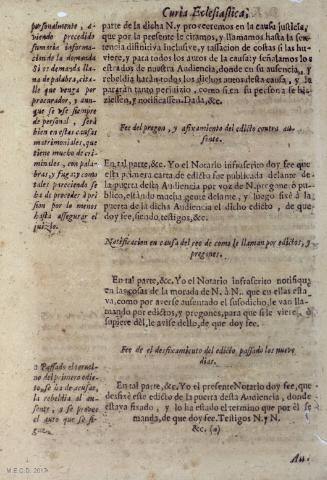 Curia Eclesiastica,
personalmente, a-
viendo precedido
sumaria informa-
cion de la demanda
Si es demanda lla-
na de palabra, cita-
lle que venga por
procurador, y aun-
que se use siempre
de personal, será
bien en estas causas
matrimoniales, que
tiene mucho de cri-
minales, con pala-
bras, y fuga: y como
tales pareciendo se
ha de proceder à pri
sion por lo menos
hasta assegurar el
juizio.
parte de la dicha N. y proveeremos en la causa justicia,
que por la presente le citamos, y llamamos hasta la sen-
tencia difinitiva inclusive, y tassacion de costas si las hu-
viere, y para todos los autos della y señalamos los
estrados de nuestra Audiencia, donde en su ausencia, y
rebeldia harán todos los dichos autos desta causa, y le
pararán tanto perjuizio, como si en su persona se hi-
ziessen, y notificassen. Dada, &c.
Fee del pregon, y afixamiento del edicto contra au-
sente.
En tal parte, &c. Yo el Notario infrascrito doy fee que
esta primera carta de edicto fue publicada delante de
la puerta desta Audiencia por voz de N. pregonero pu-
blico, estando mucha gente delante, y luego fixé à la
puerta de la dicha Audiencia el dicho edicto, de que
doy fee, siendo, testigos, &c.
Notificacion en causa del reo de como le llaman por edictos, y
pregones.
En tal parte, &c. Yo el Notario infrascrito notifiqué
en las cosas de la morada de N. à N. que en ellas esta-
va, como por averse ausentado el susodicho, le van lla-
mando por edictos, y pregones, para que si le viere, ò
supiere dél, le avise dello, de que doy fee.
Fee de el desfixamiento del edicto, passados los nueve
dias.
a Passado el termi-
no del primero edic-
to, se ha de acusar
la rebeldia al au-
sente, y se provee
el auto que se si-
gue.
En tal parte, &c. Yo el presente Notario doy fee, que
desfixé este edicto de la puerta desta Audiencia, donde
estava fixado, y lo ha estado el termino que por èl se
manda, de que doy fee. Testigos N. y N.
&c. (a)
Au-
M.E.C.D. 2017